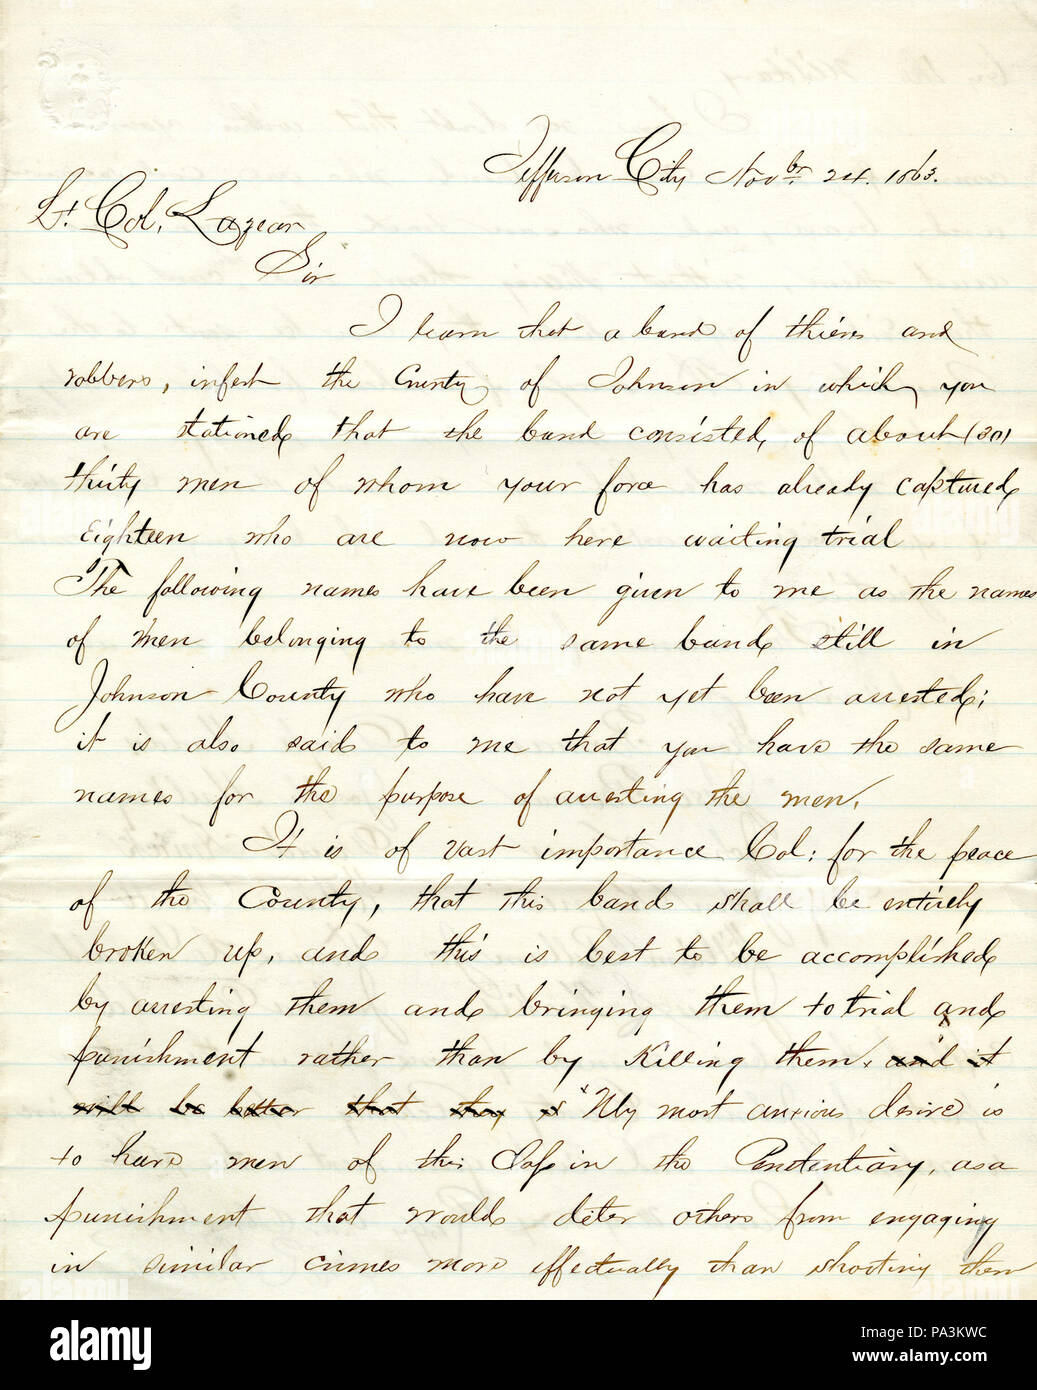 Jefferson City Novbr. 24. 1863.
Lt. Col. Lazear
Sir
I learn that a band of thieves and
robbers, infest the County of Johnson in which you
are stationed that the band consisted of about (30)
thirty men of whom your force has already captured
Eighteen who are now here waiting trial
The following names have been given to me as the names
of men belonging to the same band still in
Johnson County who have not yet been arrested;
it is also said to me that you have the same
names for the purpose of arresting the men.
It is of vast importance Col: for the peace
of the County, that this band shall be entirely
broken up, and this is best to be accomplished
by arresting them and bringing them to trial and
punishment rather than by Killing them, and it
will be better that they is "My most anxious desire is
to have men of this Class in the Penitentiary, as a
punishment that would deter others from engaging
in similar crimes more effectually than shooting them
alamy
Image ID: PA3KWC
www.alamy.com